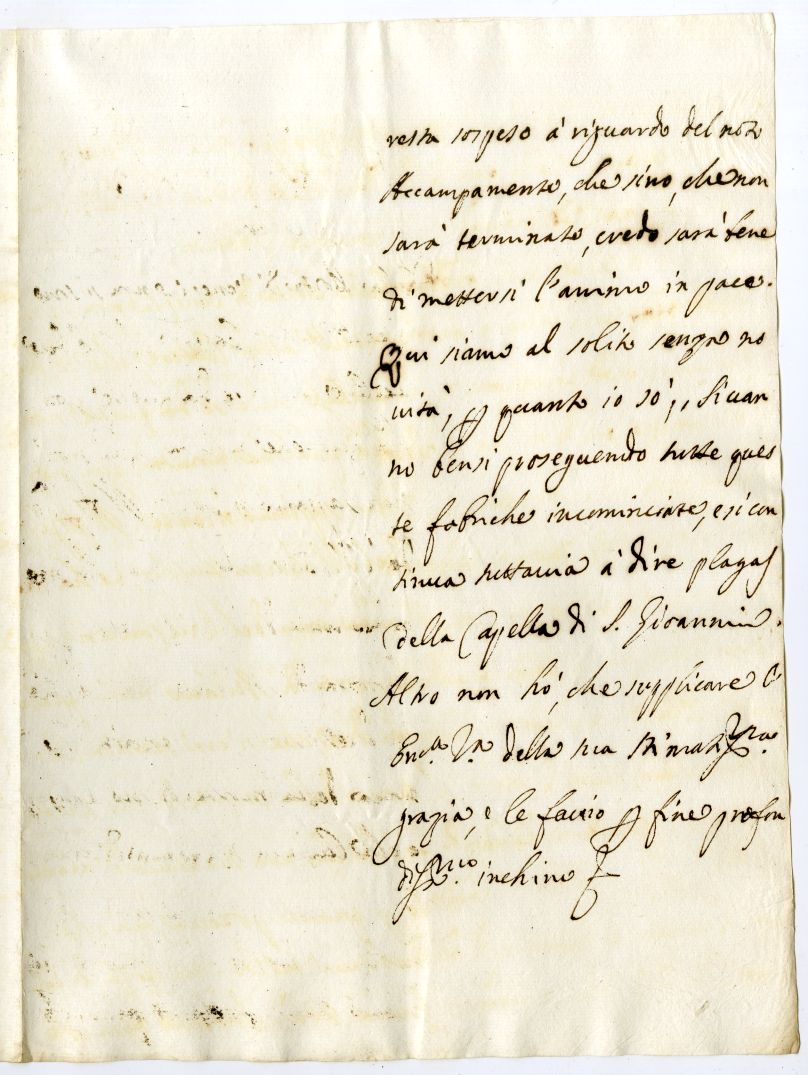 resta sospeso à riguardo del noto
Accampamento, che sino, che non
sarà terminato, credo sarà bene
di mettersi l'animo in pace.
Qui siamo al solito senza no
uità, ꝑ quanto io sò,, si uan
no bensi proseguendo tutte ques
te fabriche incominciate, e si con
tinua tuttauia à dire plagas
della Capella di S. Gioannin.
Altro non hò, che supplicare l'
Ecc.ª V.ª della sua stimatis.ma
grazia, e le faccio ꝑ fine profon
dis.mo inchino